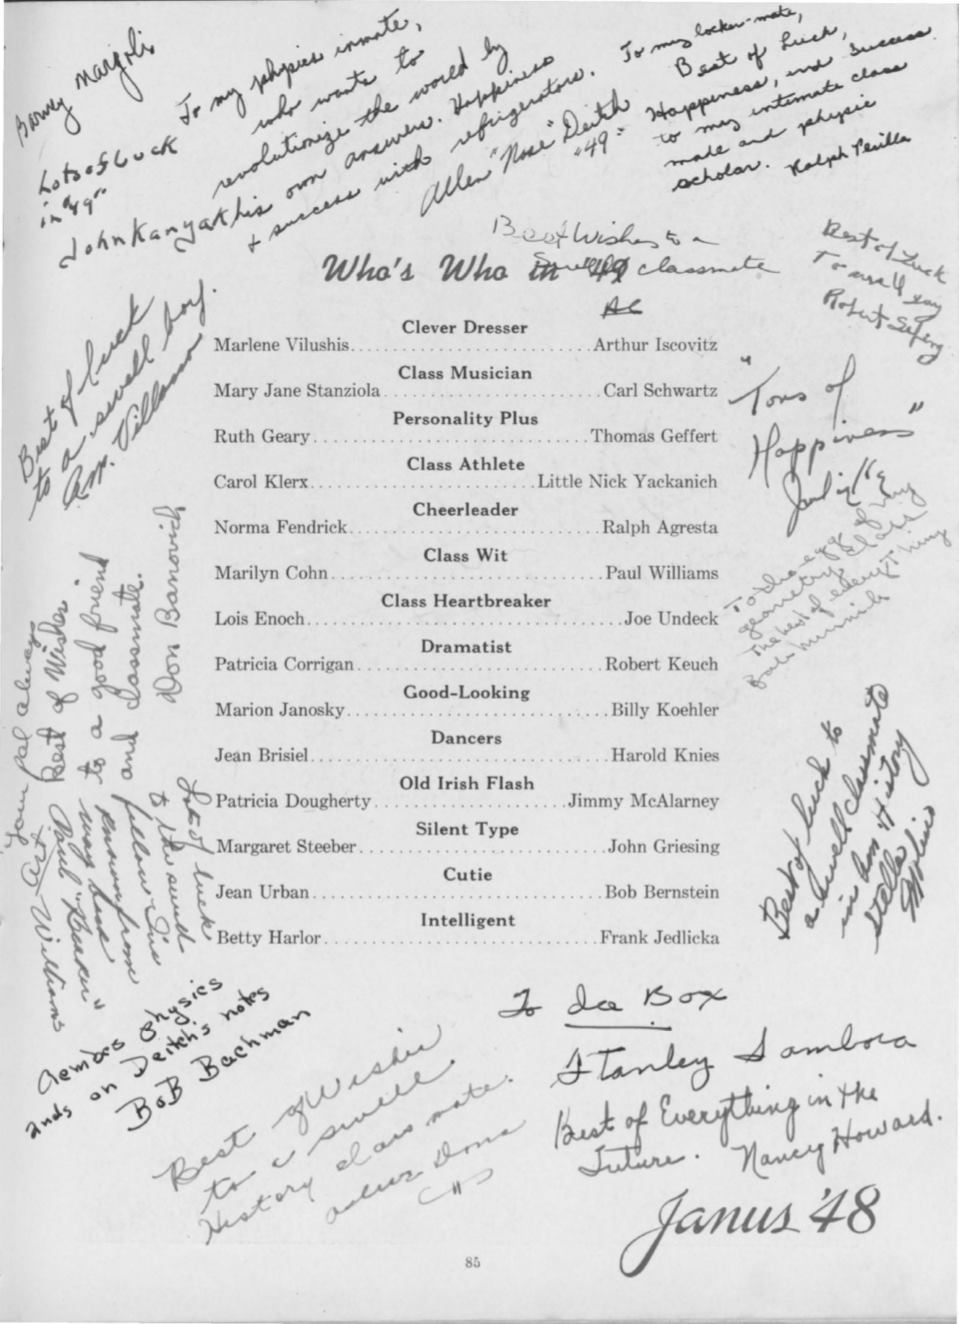 Barney Margolis
Lots of Luck
in "49"
John Kanyak
To my physics inmate,
who wants to
revolutionize the world by
his own answers. Happiness
+ success with refrigerators.
Allen "Nose" Deitch
"49"
To my locker-mate,
Best of Luck,
Happiness, and Success
to my intimate class
mate and physic
scholar. Ralph
Best Wishes to a
Swell classmate
AC
Who's Who in '49
Best of Luck
To a swell guy
Robert
Clever Dresser
Marlene Vilushis Arthur Iscovitz
Class Musician
Mary Jane Stanziola Carl Schwartz
Personality Plus
Ruth Geary Thomas Geffert
Class Athlete
Carol Klerx Little Nick Yackanich
Cheerleader
Norma Fendrick Ralph Agresta
Class Wit
Marilyn Cohn Paul Williams
Class Heartbreaker
Lois Enoch Joe Undeck
Dramatist
Patricia Corrigan Robert Keuch
Good-Looking
Marion Janosky Billy Koehler
Dancers
Jean Brisiel Harold Knies
Old Irish Flash
Patricia Dougherty Jimmy McAlarney
Silent Type
Margaret Steeber John Griesing
Cutie
Jean Urban Bob Bernstein
Intelligent
Betty Harlor Frank Jedlicka
Best of luck
to a swell boy.
Ann
"Tons of
Happiness"
To the egg of my
geometry class
The best of everything
Best of Wishes
to a good friend
and classmate.
Don Banovich
Your pal always
Art Williams
Lots of luck
to the swell
fellow I've
known from
way back
Paul
Best of luck to
a swell classmate
in Am History
Stella
Aembes physics
ands on Deitch's notes
BoB Bachman
Best of Wishes
to a swell
History class mate.
To Ice Box
Stanley Sambora
Best of Everything in the
Future. Nancy Howard.
Janus '48
85